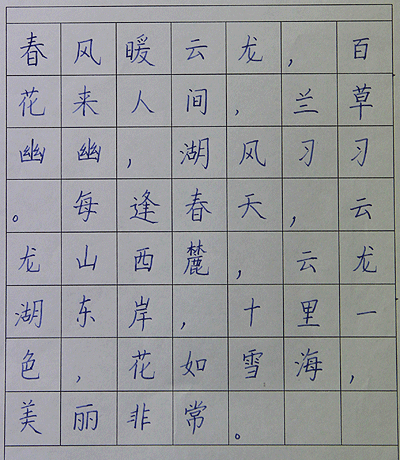 春风暖云龙，百
花来人间，兰草
幽幽，湖风习习
。每逢春天，云
龙山西麓，云龙
湖东岸，十里一
色，花如雪海，
美丽非常。